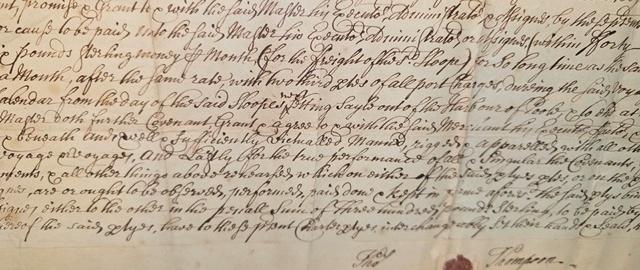 Promise & Grant to & with the said Master his Executo.rs Administrato.rs & assignes by these
or cause to be paid unto the said Master his Executo.rs Administrato.rs or assignes, (within fforty
pounds sterling money ℔ Month, (for the freight of the s.d Sloop) for so long time as the
a Month, after the same rate, with two third ptes of all port Charges, during the said voya
Calendar from the day of the said Sloopes setting Sayle out of the Harbour of Poole, to the
Master doth further Covenant Grant & agree to & with the said Merchant his Executo.rs
& beneath And well & sufficiently victualled Manned, rigged & apparelled with all oth
voyage or voyages, And Lastly (for the true performance of all & Singular the Covenants
ments, & all other things above rehearsed which on either of the said ptyes, or on the p
are or ought to be observed, performed, paid done & kept in the said ptyes bin
signes, either to the other in the penall Sum of Three hundred pounds sterling, to be paid by
hereof the said ptyes, have to these present Charterptyes, interchangeably set their hands & Seals,
Tho.s Thompson